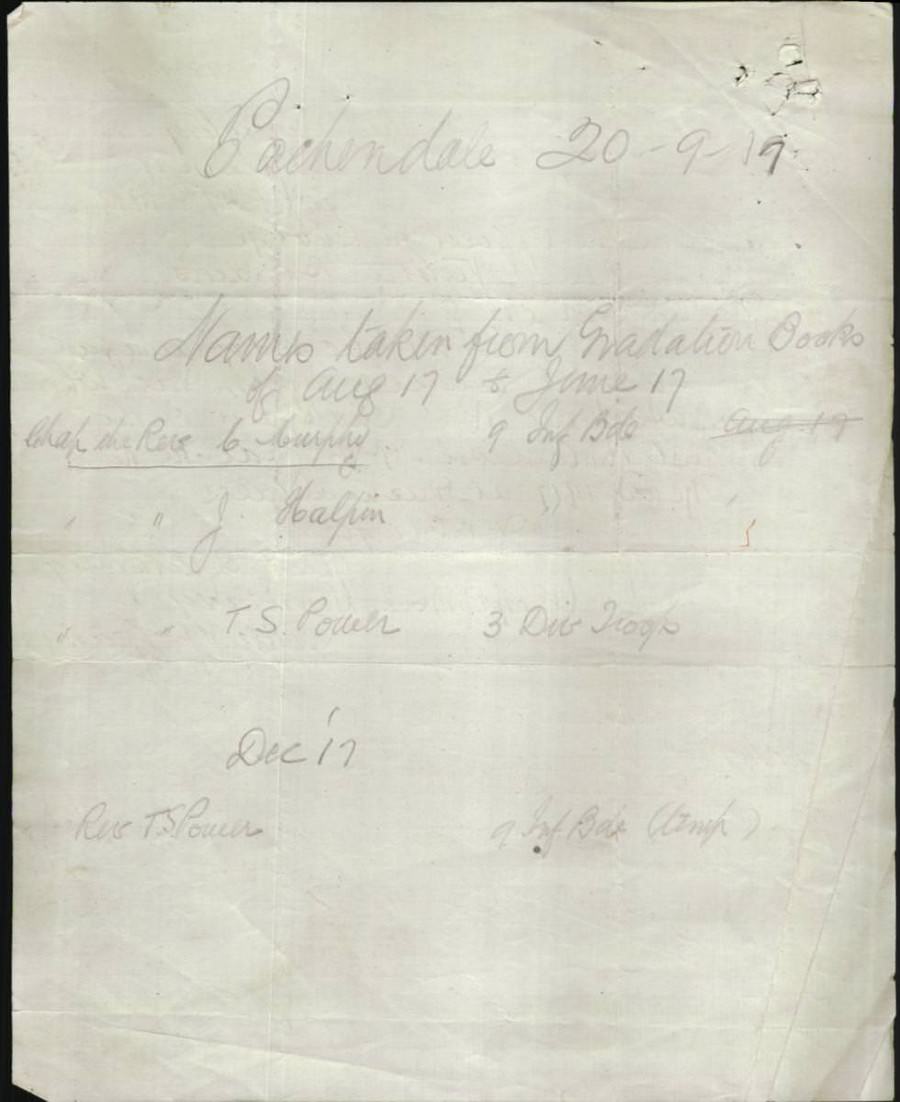 Pachendale 20-9-19.
Names taken from Gradation Books
of Aug 17 & June 17
Chap the Rev C. Murphy. 9 Inf Bde Aug 17
" " J. Halpin "
" " T.S. Power 3 Div Troops
Dec '17
Rev T.S Power 9 Inf Bde (temp)